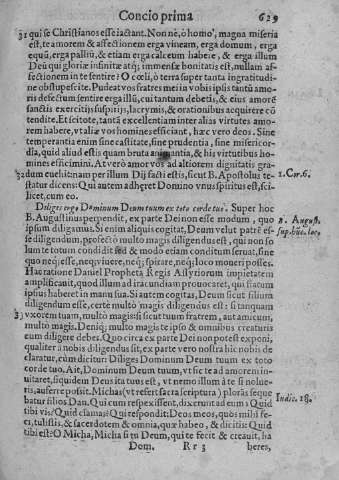 Concio prima 629
31 qui se Christianos esse iactant. Non nè, ò homo, magna miseria
est, te amorem & affectionem erga vineam, erga domum, erga
equū, erga palliū, & etiam erga calceum habere, & erga illum
Deū qui gloriæ infinitæ atq; immensæ bonitatis est, nullam af-
fectionem in te sentire? O cœli, ò terra super tanta ingratitudi-
ne obstupescite. Pudeat vos fratres mei in vobis ipsis tantū amo-
ris defectum sentire erga illū, cui tantum debetis, & eius amorē
sanctis exercitijs suspirijs, lacrymis, & orationibus acquirere cō
tendite. Et scitote, tantā excellentiam inter alias virtutes amo-
rem habere, vt aliæ vos homines efficiant, hæc vero deos. Sine
temperantia enim sine castitate, sine prudentia, sine misericor-
dia, quid aliud estis quam bruta animantia, & his virtutibus ho-
mines efficimini. At verò amor vos ad altiorem dignitatis gra-
32 dum euehit nam per illum Dij facti estis, sicut B. Apostolus te- 1. Cor. 6.
statur dicens: Qui autem adhæret Domino vnus spiritus est, sci-
licet, cum eo.
Diliges ergo Dominum Deum tuum ex toto corde tuo. Super hoc
B. Augustinus perpendit, ex parte Dei non esse modum, quo B. August.
ipsum diligamus. Si enim aliquis cogitat, Deum velut patrē es- sup. hūc. loc.
se diligendum, profectò multo magis diligendus est, qui non so
lum te totum condidit sed & modo etiam conditum seruat, sine
quo neq; esse, neq; viuere, neq; spirare, neq; loco moueri posses.
Hac ratione Daniel Propheta Regis Assyriorum impietatem
amplificauit, quod illum ad iracundiam prouocaret, qui flatum
ipsius haberet in manu sua. Si autem cogitas, Deum sicut filium
diligendum esse, certe multò magis diligendus est: si tanquam
33 vxorem tuam, multò magis: si sicut tuum fratrem, aut amicum,
multò magis. Deniq; multo magis te ipso & omnibus creaturis
eum diligere debes. Quo circa ex parte Dei non potest exponi,
qualiter à nobis diligendus sit, ex parte vero nostra hic nobis de
claratur, cùm dicitur: Diliges Dominum Deum tuum ex toto
cor de tuo. Ait, Dominum Deum tuum, vt sic te ad amorem in-
uitaret, siquidem Deus ita tuus est, vt nemo illum à te si nolue-
ris, auferre possit. Michas (vt refert sacra scriptura) plorās seque Iudic. 18.
batur filios Dan. Qui cum respexissent, dixerunt ad eum: Quid
tibi vis? Quid clamas? Qui respondit: Deos meos, quòs mihi fe-
ci, tulistis, & sacerdotem & omnia, quæ habeo, & dicitis: Quid
tibi est? O Micha, Micha si tu Deum, qui te fecit & creauit, ha
Dom. Rr 3 beres,